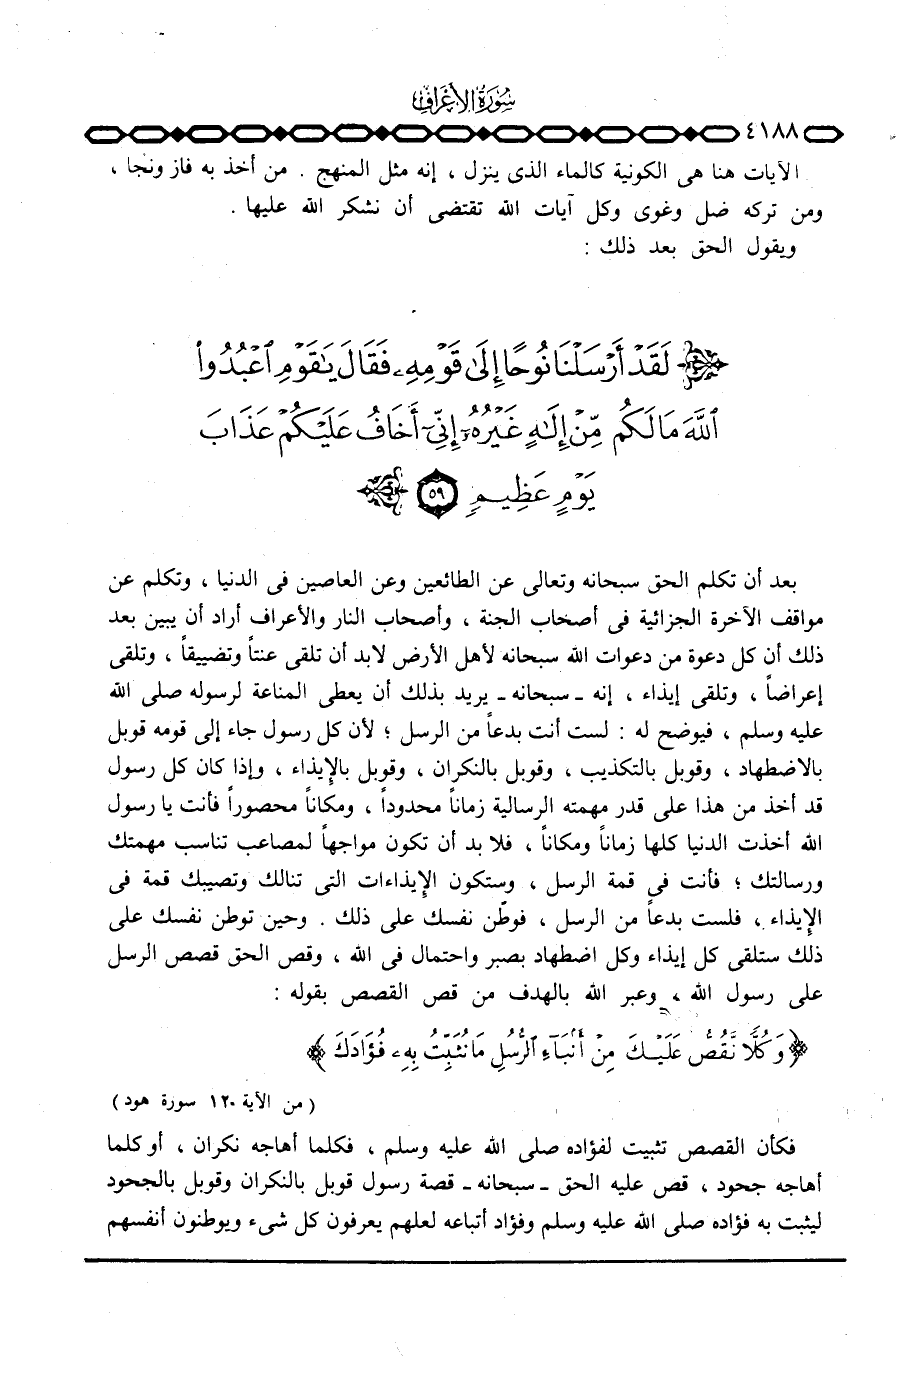 سُورَةُ الأَعْرَافِ
٤١٨٨
الآيات هنا هى الكونية كالماء الذى ينزل ، إنه مثل المنهج . من أخذ به فاز ونجا ،
ومن تركه ضل وغوى وكل آيات الله تقتضى أن نشكر الله عليها .
ويقول الحق بعد ذلك :
لَقَدْ أَرْسَلْنَا نُوحًا إِلَىٰ قَوْمِهِۦ فَقَالَ يَٰقَوْمِ ٱعْبُدُوا۟
ٱللَّهَ مَا لَكُم مِّنْ إِلَٰهٍ غَيْرُهُۥٓ إِنِّىٓ أَخَافُ عَلَيْكُمْ عَذَابَ
يَوْمٍ عَظِيمٍ ٥٩
بعد أن تكلم الحق سبحانه وتعالى عن الطائعين وعن العاصين فى الدنيا ، وتكلم عن
مواقف الآخرة الجزائية فى أصحاب الجنة ، وأصحاب النار والأعراف أراد أن يبين بعد
ذلك أن كل دعوة من دعوات الله سبحانه لأهل الأرض لابد أن تلقى عنتاً وتضييقاً ، وتلقى
إعراضاً ، وتلقى إيذاء ، إنه ـ سبحانه ـ يريد بذلك أن يعطى المناعة لرسوله صلى الله
عليه وسلم ، فيوضح له : لست أنت بدعاً من الرسل ؛ لأن كل رسول جاء إلى قومه قوبل
بالاضطهاد ، وقوبل بالتكذيب ، وقوبل بالنكران ، وقوبل بالإيذاء ، وإذا كان كل رسول
قد أخذ من هذا على قدر مهمته الرسالية زماناً محدوداً ، ومكاناً محصوراً فأنت يا رسول
الله أخذت الدنيا كلها زماناً ومكاناً ، فلا بد أن تكون مواجهاً لمصاعب تناسب مهمتك
ورسالتك ؛ فأنت فى قمة الرسل ، وستكون الإيذاءات التى تنالك وتصيبك قمة فى
الإيذاء ، فلست بدعاً من الرسل ، فوطِّن نفسك على ذلك . وحين توطن نفسك على
ذلك ستلقى كل إيذاء وكل اضطهاد بصبر واحتمال فى الله ، وقص الحق قصص الرسل
على رسول الله ، وعبر الله بالهدف من قص القصص بقوله :
﴿ وَكُلًّا نَّقُصُّ عَلَيْكَ مِنْ أَنۢبَآءِ ٱلرُّسُلِ مَا نُثَبِّتُ بِهِۦ فُؤَادَكَ ﴾
( من الآية ١٢٠ سورة هود )
فكأن القصص تثبيت لفؤاده صلى الله عليه وسلم ، فكلما أهاجه نكران ، أو كلما
أهاجه جحود ، قص عليه الحق ـ سبحانه ـ قصة رسول قوبل بالنكران وقوبل بالجحود
ليثبت به فؤاده صلى الله عليه وسلم وفؤاد أتباعه لعلهم يعرفون كل شىء ويوطنون أنفسهم